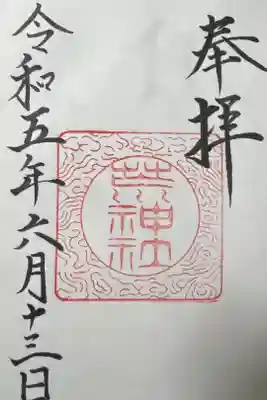 奉拝
令和五年六月十三日